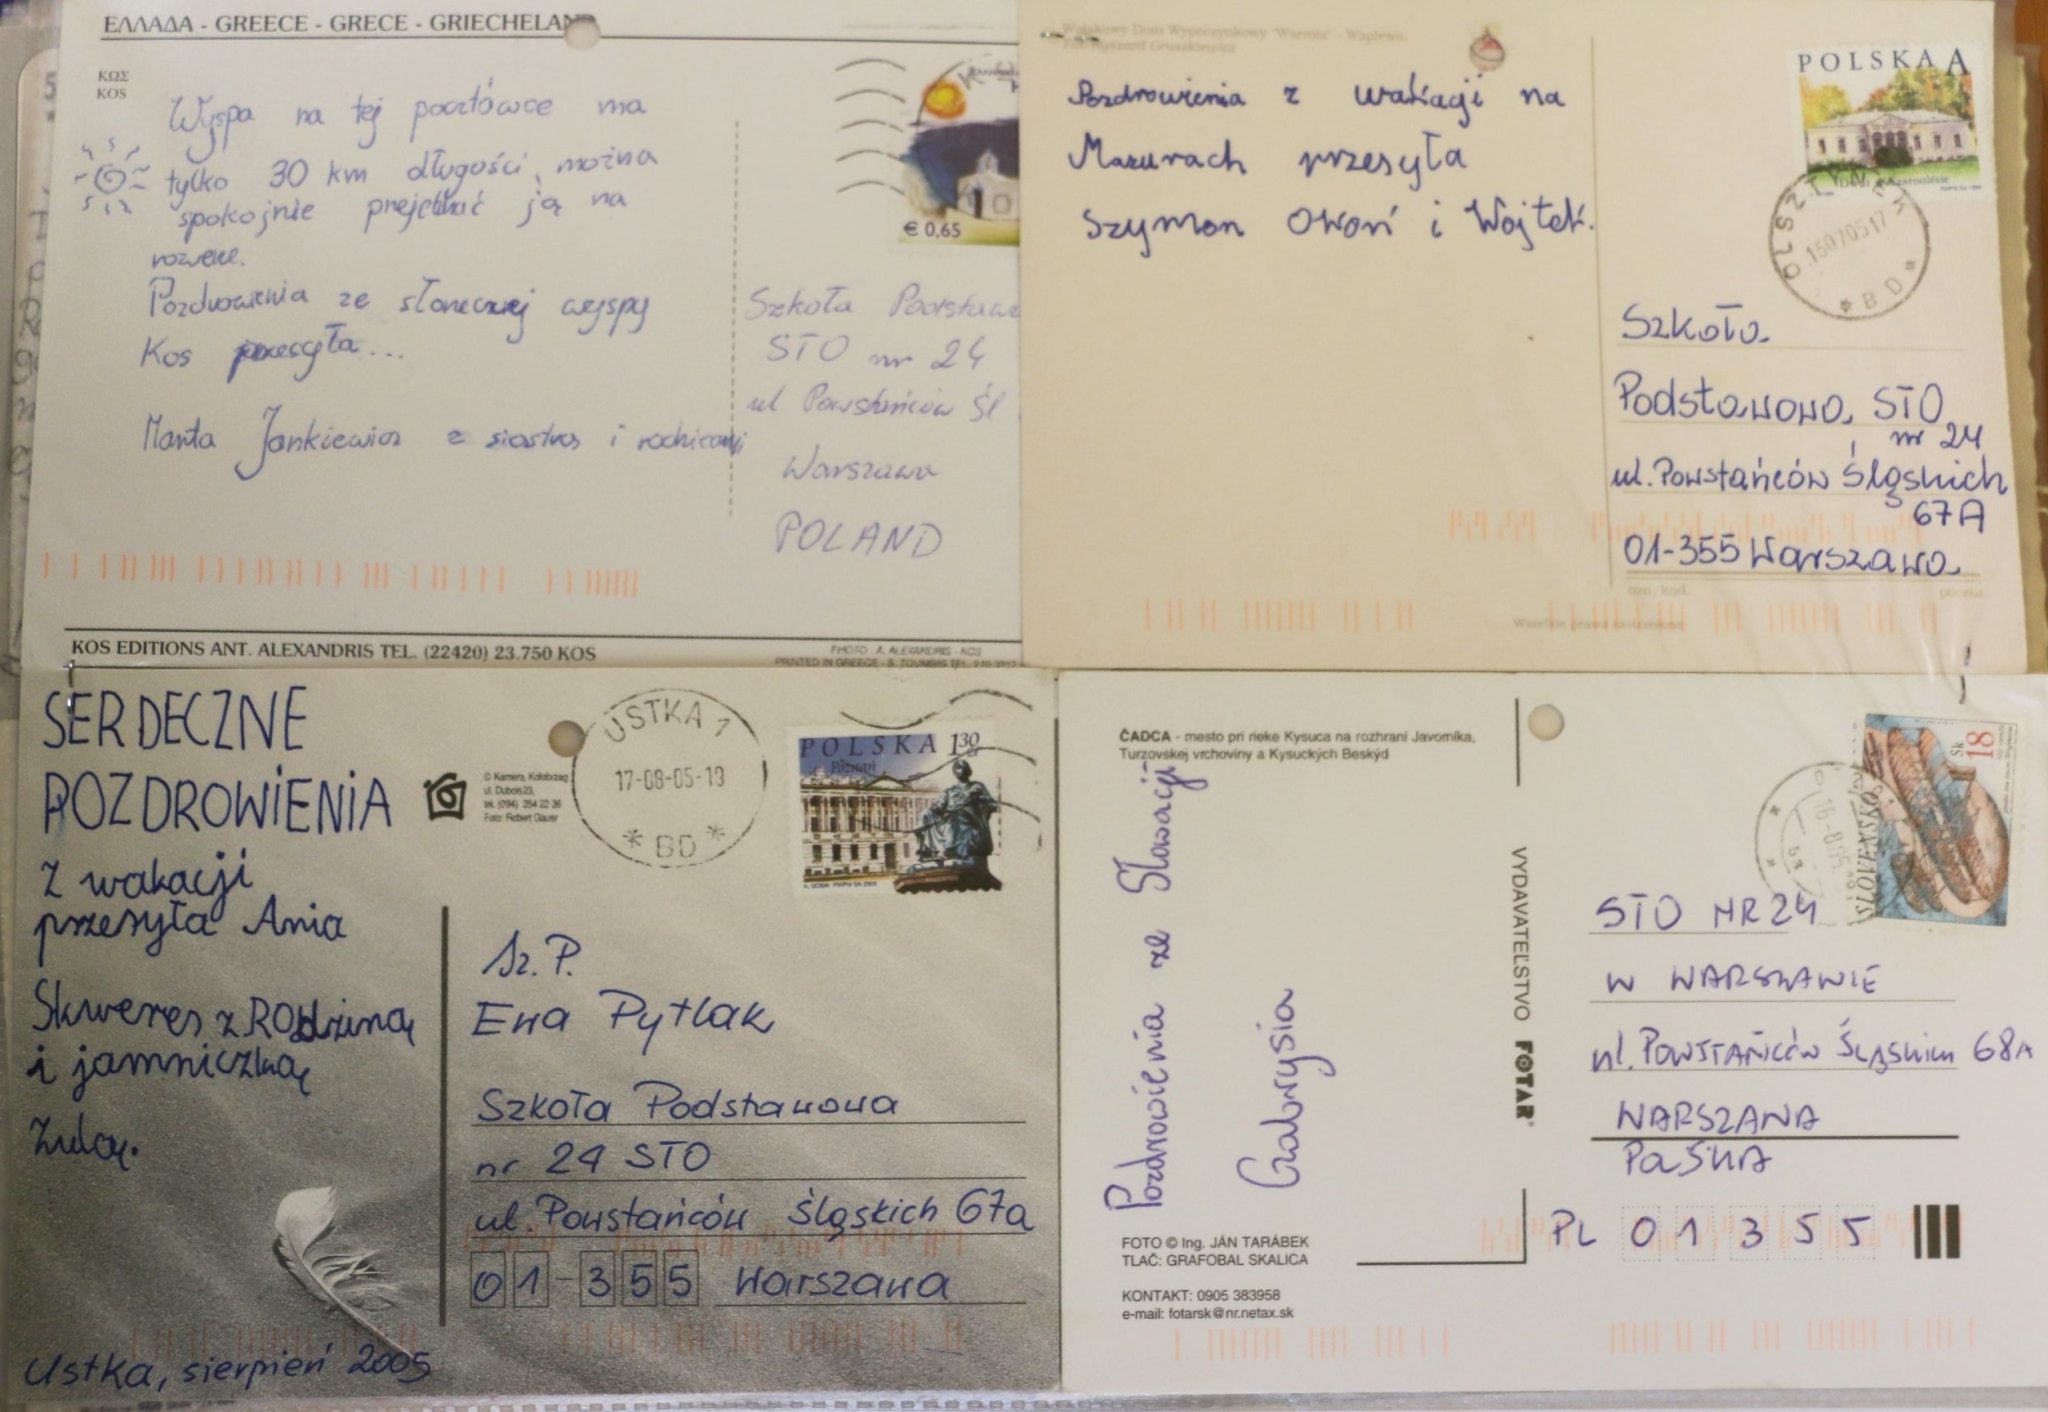 ΕΛΛΑΔΑ - GREECE - GRECE - GRIECHELAND
ΚΩΣ
KOS
Wyspa na tej pocztówce ma
tylko 30 km długości, można
spokojnie przejechać ją na
rowerze.
Pozdrowienia ze słonecznej wyspy
Kos przesyła...
Marta Jankiewicz z siostrą i rodzicami
€ 0,65
Szkoła Podstawo
STO nr 24
ul Powstańców Śl
Warszawa
POLAND
KOS EDITIONS ANT. ALEXANDRIS TEL. (22420) 23.750 KOS
PHOTO A. ALEXANDRIS - KOS
PRINTED IN GREECE - S. TOUMBIS TEL. 210
Wojskowy Dom Wypoczynkowy "Warmia" - Waplewo
Fot. Ryszard Gruszkiewicz
Pozdrowienia z wakacji na
Mazurach przesyła
Szymon Okoń i Wojtek.
POLSKA A
OLSZTYN
150705 17
* B D *
Szkoła
Podstawowa STO
nr 24
ul. Powstańców Śląskich
67A
01-355 Warszawa
ozn. kod. poczta
Wszelkie prawa zastrzeżone
SERDECZNE
POZDROWIENIA
Z wakacji
przesyła Ania
Skweres z Rodziną
i jamniczką
Zulą.
Ustka, sierpień 2005
© Kamera, Kołobrzeg
ul. Dubois 23,
tel. (094) 354 22 36
Foto: Robert Gauer
USTKA 1
17-08-05-19
* BD *
POLSKA 1,30 zł
Poznań
Sz. P.
Ewa Pytlak
Szkoła Podstawowa
nr 24 STO
ul. Powstańców Śląskich 67a
01-355 Warszawa
ČADCA - mesto pri rieke Kysuca na rozhraní Javorníka,
Turzovskej vrchoviny a Kysuckých Beskýd
Pozdrowienia ze Słowacji
Gabrysia
VYDAVATEĽSTVO FOTAR
FOTO © Ing. JÁN TARÁBEK
TLAČ: GRAFOBAL SKALICA
KONTAKT: 0905 383958
e-mail: fotarsk@nr.netax.sk
18 Sk
SLOVENSKO
STO NR 24
W WARSZAWIE
ul. POWSTAŃCÓW ŚLĄSKICH 68A
WARSZAWA
POLSKA
PL 01355